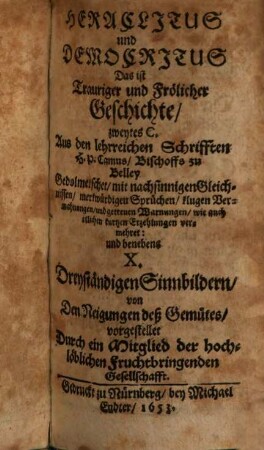 HERACLITUS
und
DEMOCRITUS
Das ist
Trauriger und Frölicher
Geschichte/
zweytes C.
Aus den lehrreichen Schrifften
H. P. Camus/ Bischoffs zu
Belley
Gedolmetschet/ mit nachsinnigen Gleich-
nissen/ merkwürdigen Sprüchen/ klugen Ver-
mahnungen/ und getreuen Warnungen/ wie auch
etlichen kurtzen Erzehlungen ver-
mehret:
und benebens
X.
Dreyständigen Sinnbildern/
von
Den Neigungen deß Gemütes/
vorgestellet
Durch ein Mitglied der hoch-
löblichen Fruchtbringenden
Gesellschafft.
Gedruckt zu Nürnberg/ bey Michael
Endter/ 1653.